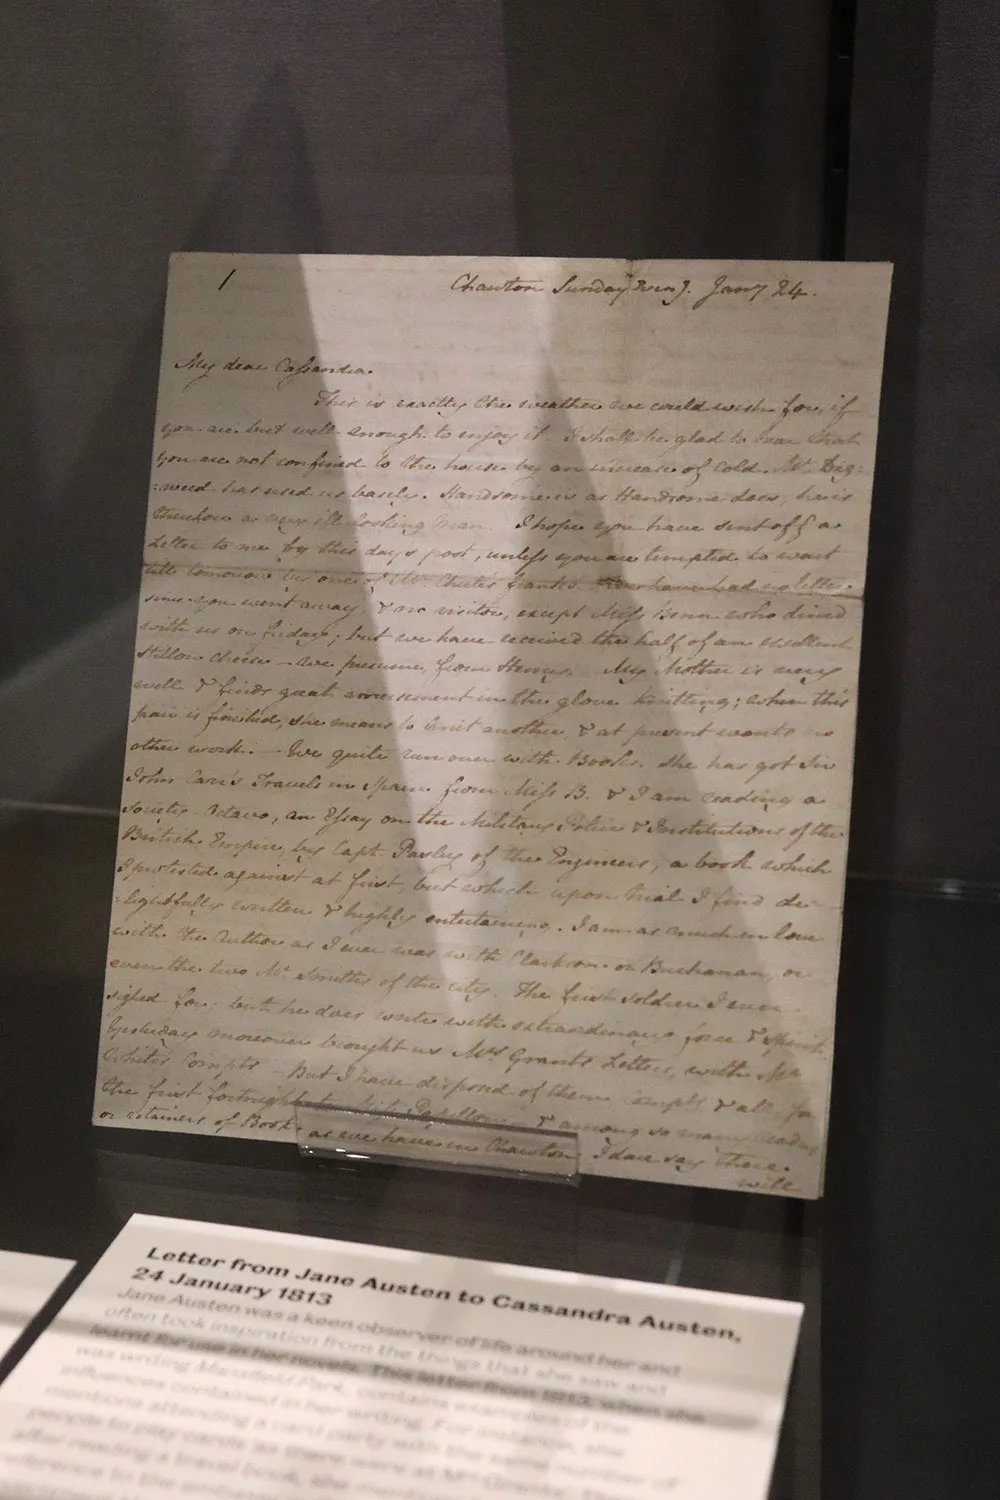 1
Chawton Sunday Eveng. Jany 24.
My dear Cassandra.
This is exactly the weather we could wish for, if
you are but well enough to enjoy it. I shall be glad to hear that
you are not confined to the house by an increase of Cold. Mr Dig:
:weed has used us basely. Handsome is as Handsome does; he is
therefore a very ill-looking Man. I hope you have sent off a
Letter to me by this day's post, unless you are tempted to wait
till tomorrow by one of Mr Chute's franks. We have had no letter
since you went away, & no visitor, except Miss Benn who dined
with us on friday; but we have received the half of an excellent
Stilton cheese - we presume, from Henry. My Mother is very
well & finds great amusement in the glove knitting; when this
pair is finished, she means to knit another, & at present wants no
other work. - We quite run over with Books. She has got Sir
John Carr's Travels in Spain from Miss B. & I am reading a
Society-Octavo, an Essay on the Military Police & Institutions of the
British Empire, by Capt. Pasley of the Engineers, a book which
I protested against at first, but which upon trial I find de-
:lightfully written & highly entertaining. I am as much in love
with the Author as I ever was with Clarkson or Buchanan, or
even the two Mr Smiths of the city. The first soldier I ever
sighed for; but he does write with extraordinary force & spirit.
Yesterday moreover brought us Mrs Grant's Letters, with Mr
White's Compts - But I have disposed of them, Compts & all, for
the first fortnight to Miss Papillon - & among so many readers
or retainers of Books as we have in Chawton, I dare say there
will
Letter from Jane Austen to Cassandra Austen,
24 January 1813
Jane Austen was a keen observer of life around her and
often took inspiration from the things that she saw and
learnt for use in her novels. This letter from 1813, when she
was writing Mansfield Park, contains examples of the
influences contained in her writing. For instance, she
mentions attending a card party with the same number of
people to play cards as there were at Mrs Grant's. Then
after reading a travel book, she
reference to the